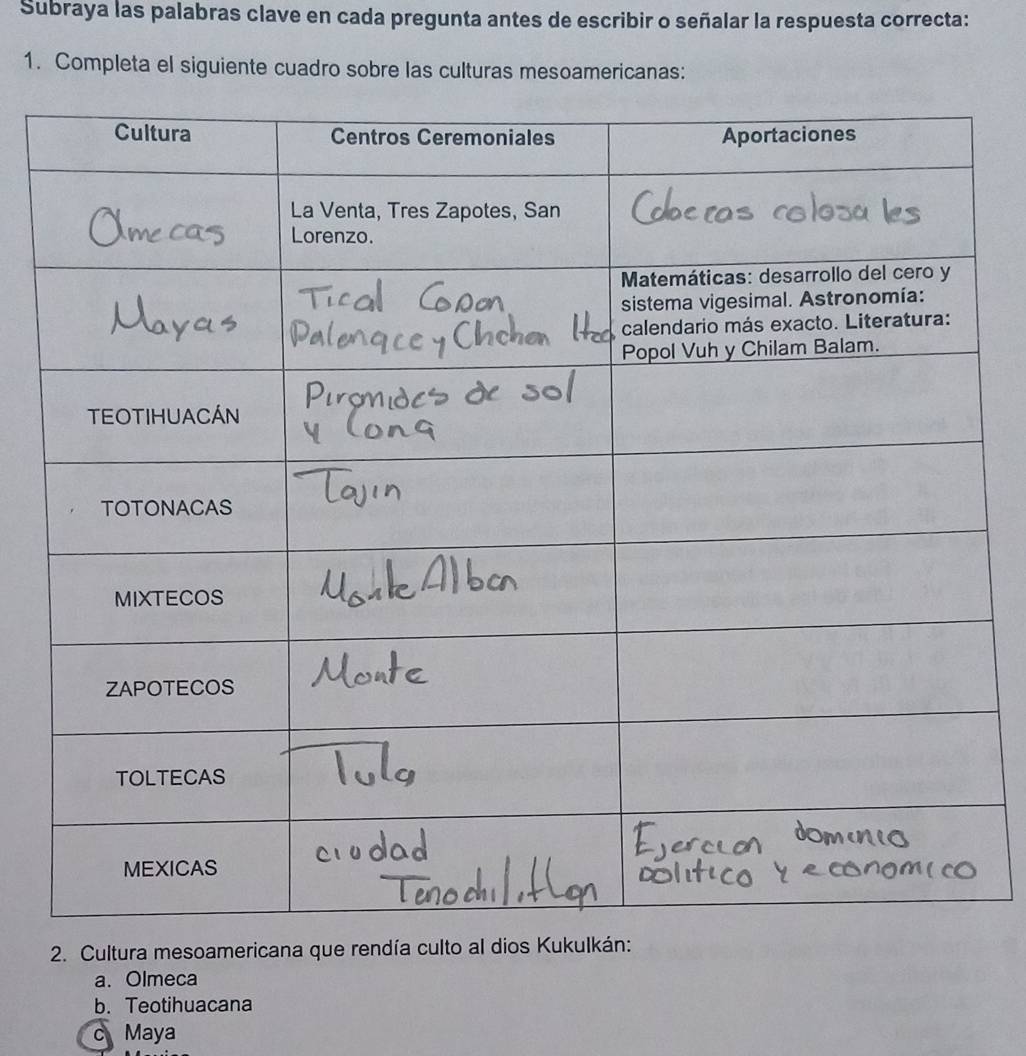 Subraya las palabras clave en cada pregunta antes de escribir o señalar la respuesta correcta:
1. Completa el siguiente cuadro sobre las culturas mesoamericanas:
Cultura Centros Ceremoniales Aportaciones
Olmecas
La Venta, Tres Zapotes, San
Lorenzo.
Cabezas colosales
Mayas
Tical Copan
Palenque y Chichen Itza
Matemáticas: desarrollo del cero y
sistema vigesimal. Astronomía:
calendario más exacto. Literatura:
Popol Vuh y Chilam Balam.
TEOTIHUACÁN
Piramides de sol
y Lona
TOTONACAS
Tajin
MIXTECOS
Monte Alban
ZAPOTECOS
Monte
TOLTECAS
Tula
MEXICAS
ciudad
Tenochtitlan
Ejercion dominio
politico y economico
2. Cultura mesoamericana que rendía culto al dios Kukulkán:
a. Olmeca
b. Teotihuacana
c Maya